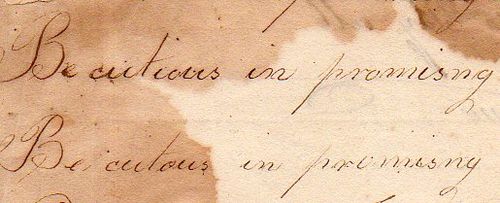 Be cutious in promisng
Be cutous in promisng